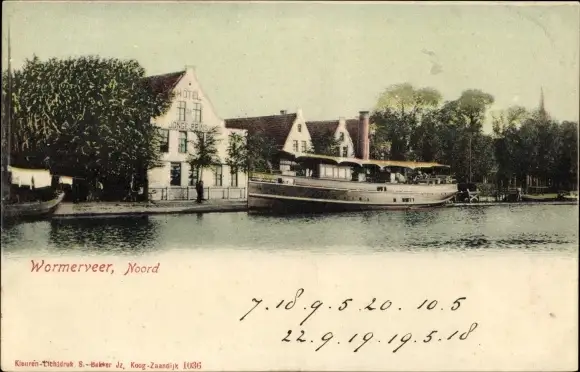 HOTEL
Wormerveer, Noord
7. 18. 9. 5 20. 10. 5
22. 9. 19. 19. 5. 18.
Kleuren-Lichtdruk S. Bakker Jz, Koog-Zaandijk 1036